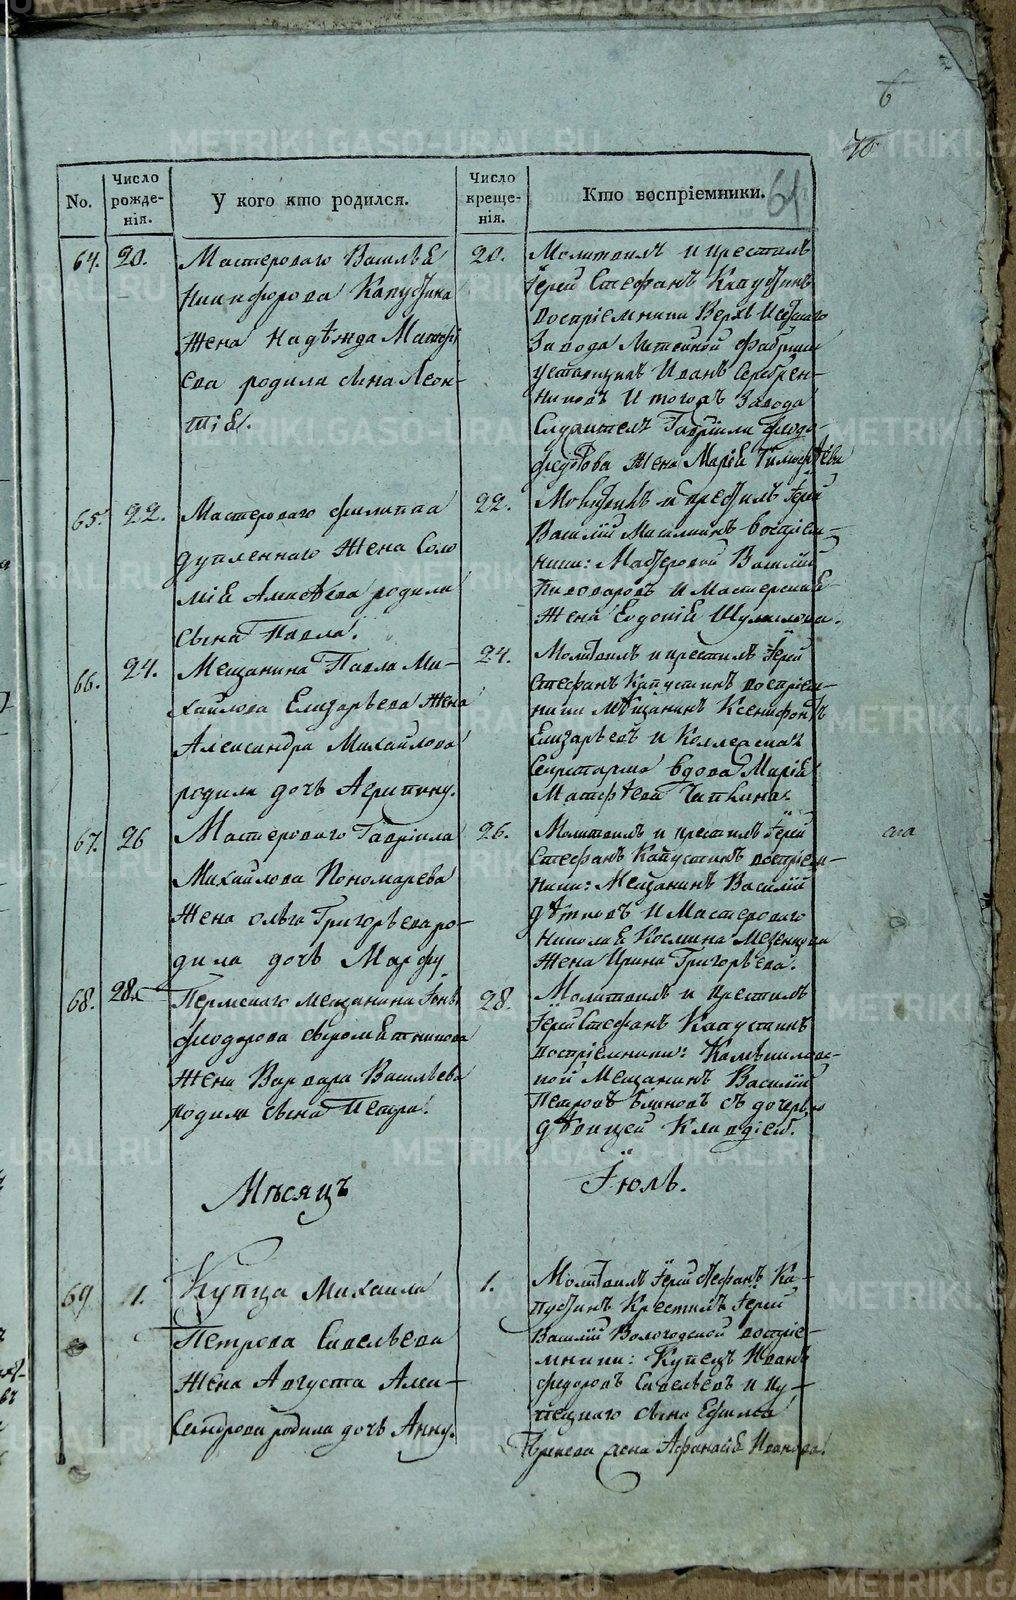 6
61
No.
Число рожде-нія.
У кого кто родился.
Число креще-нія.
Кто воспріемники.
64. 20.
Мастероваго Василья
Никифорова Капустина
Жена Надѣжда Матфі
ева родила сына Леон-
тія.
20.
Молитвилъ и крестилъ
Іерей Стефанъ Капустинъ
воспріемники Верхъ Исетскаго
Завода Литейной фабрики
уставщикъ Иванъ Серебрен-
никовъ И тогожъ Завода
Служителя Гавріила Ѳеодо-
Жена Марія Тимофѣева
65. 22.
Мастероваго Филиппа
Дупленнаго Жена Соло
мія Алексѣева родила
сына Павла.
22.
Молитвилъ и крестилъ Іерей
Василій воспріем-
ники: Мастеровой Василій
Пивоваровъ И Мастерская
Жена Евдокія Шумилова.
66. 24.
Мещанина Павла Ми-
хайлова Елизарьева Жена
Александра Михайлова
родила дочь Агрипину.
24.
Молитвилъ и крестилъ Іерей
Стефанъ Капустинъ воспріем-
ники Мѣщанинъ Ксенифонтъ
Елизарьевъ и Коллежская
Секретарша вдова Марія
Матфѣева
67. 26
Мастероваго Гавріила
Михайлова Пономарева
Жена Ольга Григорьева ро-
дила дочь Марфу
26.
Молитвилъ и крестилъ Іерей
Стефанъ Капустинъ воспріем-
ники: Мещанинъ Василій
Дѣтковъ И Мастероваго
Николая Космина Мезенцова
Жена Ирина Григорьева.
68. 28
Пермскаго мещанина
Ѳеодорова Сыромятникова
Жена Варвара Васильева
родила сына Петра.
28.
Молитвилъ и крестилъ
Іерей Стефанъ Капустинъ
воспріемники: Камышловс-
кой Мещанинъ Василій
Петровъ Блиновъ съ дочерью
дѣвицей Клавдіей.
Мѣсяцъ Іюль.
69 1.
Купца Михаила
Петрова Савельева
Жена Августа Алек-
сандрова родила дочь Анну.
1.
Молитвилъ Іерей Стефанъ Ка-
пустинъ Крестилъ Іерей
Василій Вологодской воспріе-
мники: Купецъ Иванъ
Федоровъ Савельевъ и ку-
пецкаго сына Ефима
жена Афанасія Иванова.